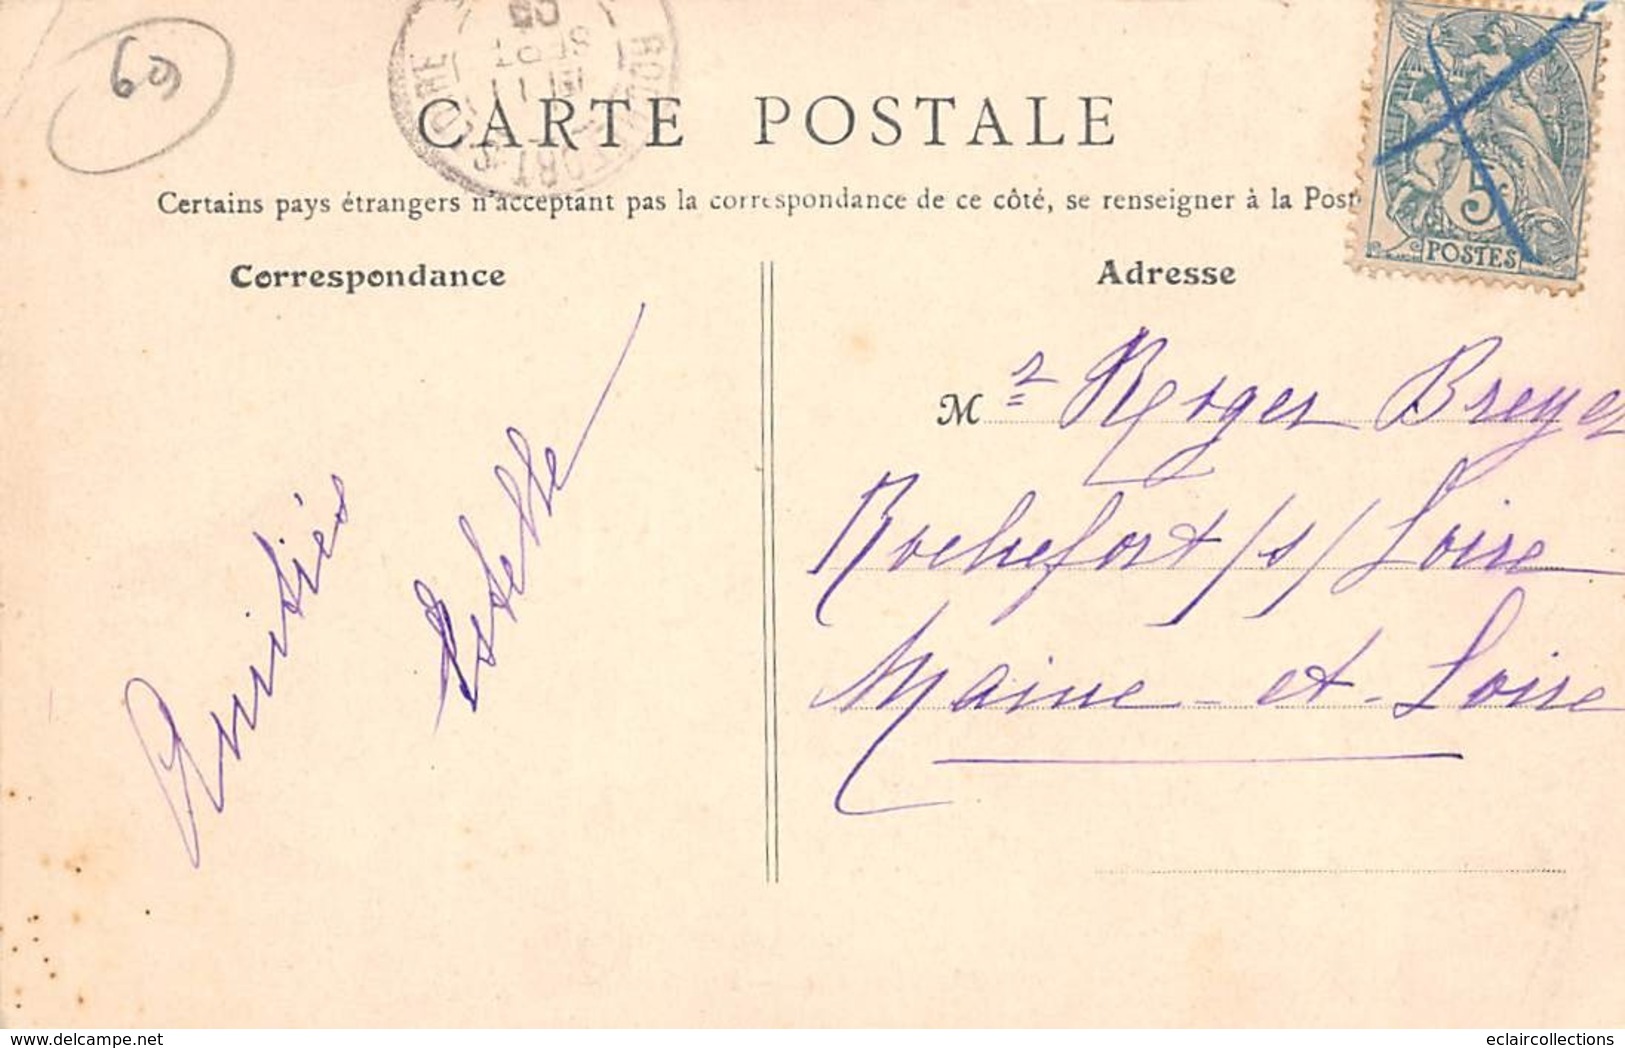 60
CARTE POSTALE
Certains pays étrangers n'acceptant pas la correspondance de ce côté, se renseigner à la Post
Correspondance
Adresse
5c
POSTES
Mr Roger Breyer
Rochefort /s/ Loire
Maine-et-Loire
Amitiés
Estelle
delcampe.net
eclaircollections